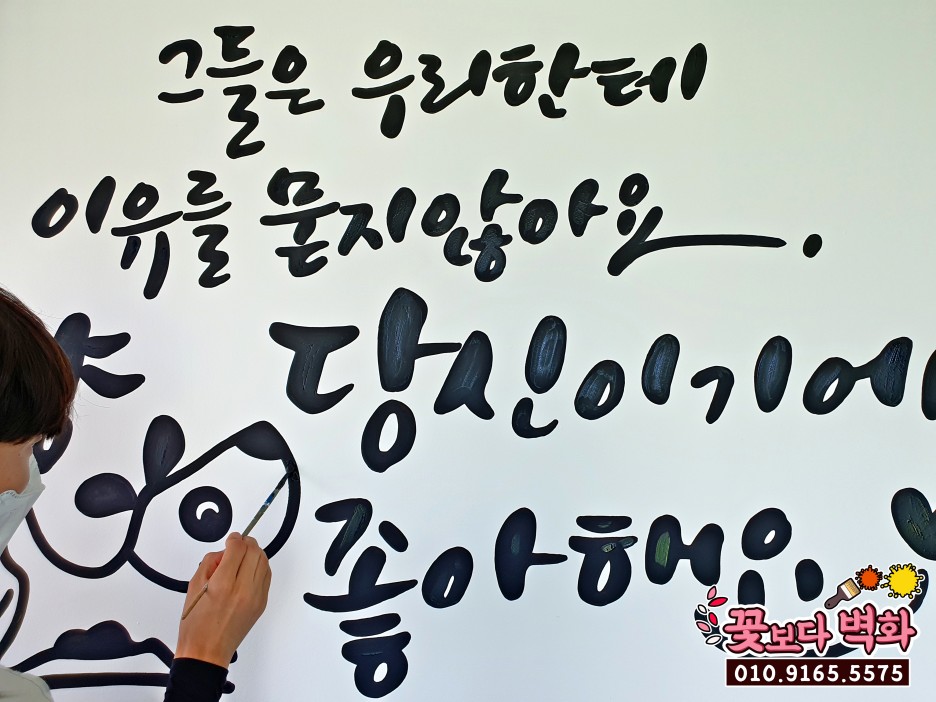 그들은 우리한테
이유를 묻지않아요.
당신이기에
좋아해요.
꽃보다 벽화
010.9165.5575